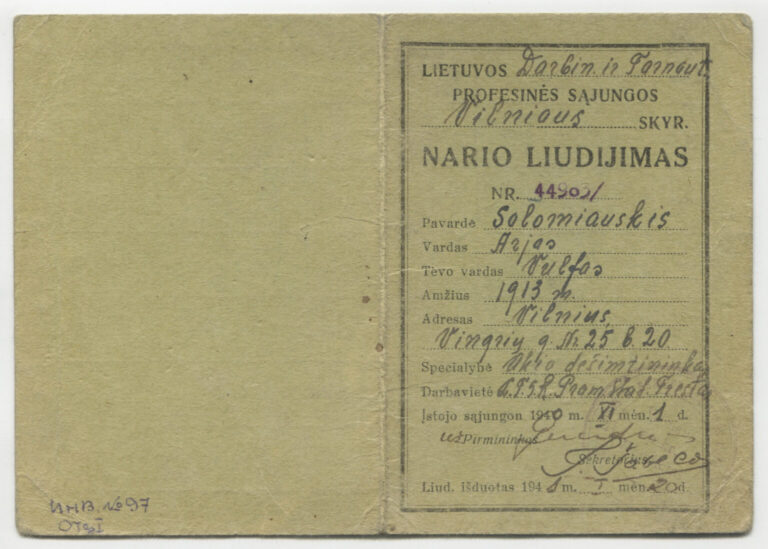 LIETUVOS Darbin. ir Tarnaut.
PROFESINĖS SĄJUNGOS
Vilniaus SKYR.
NARIO LIUDIJIMAS
NR.
Pavardė Solomiauskis
Vardas Arjas
Tėvo vardas Vulfas
Amžius 1913 m.
Adresas Vilnius,
Vingrių g. Nr. 25 b. 20
Specialybė dešimtininkas
Darbavietė Prom. Stat. Trestas
Įstojo sąjungon 1940 m. XI mėn. 1 d.
už Pirmininkas
Sekretorius
Liud. išduotas 1941 m. I mėn. 20 d.
ИНВ. № 97